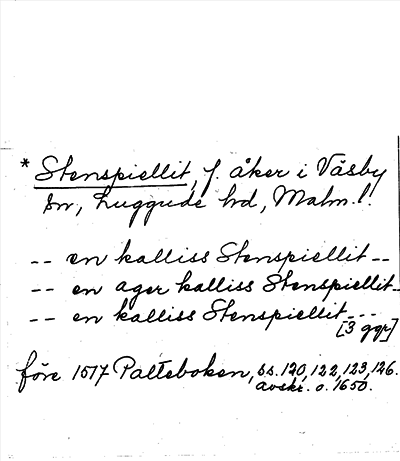 * Stenspiellit, f. åker i Väsby
sn, Luggude hd, Malm. l.
-- en kalliss Stenspiellit --
-- en ager kalliss Stenspiellit --
-- en kalliss Stenspiellit ---
[3 ggr]
före 1517 Palteboken, ss. 120, 122, 123, 126.
avskr. o. 1650.